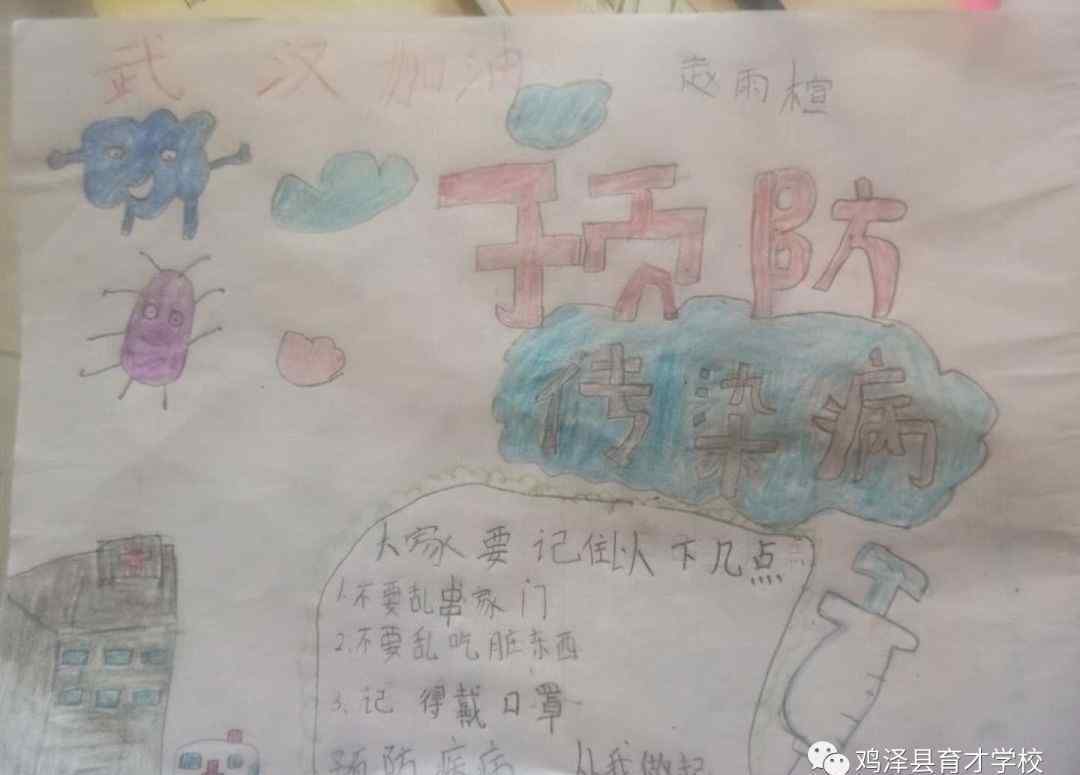 武汉加油 赵雨楦
预防
传染病
大家要记住以下几点
1.不要乱串家门
2.不要乱吃脏东西
3.记得戴口罩
预防疾病 从我做起
鸡泽县育才学校